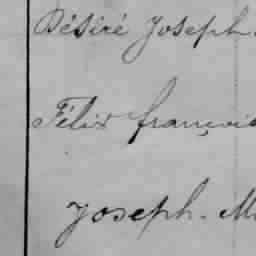 Désiré Joseph.
Félix françois
Joseph. M